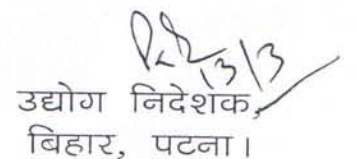 13/3
उद्योग निदेशक,
बिहार, पटना।